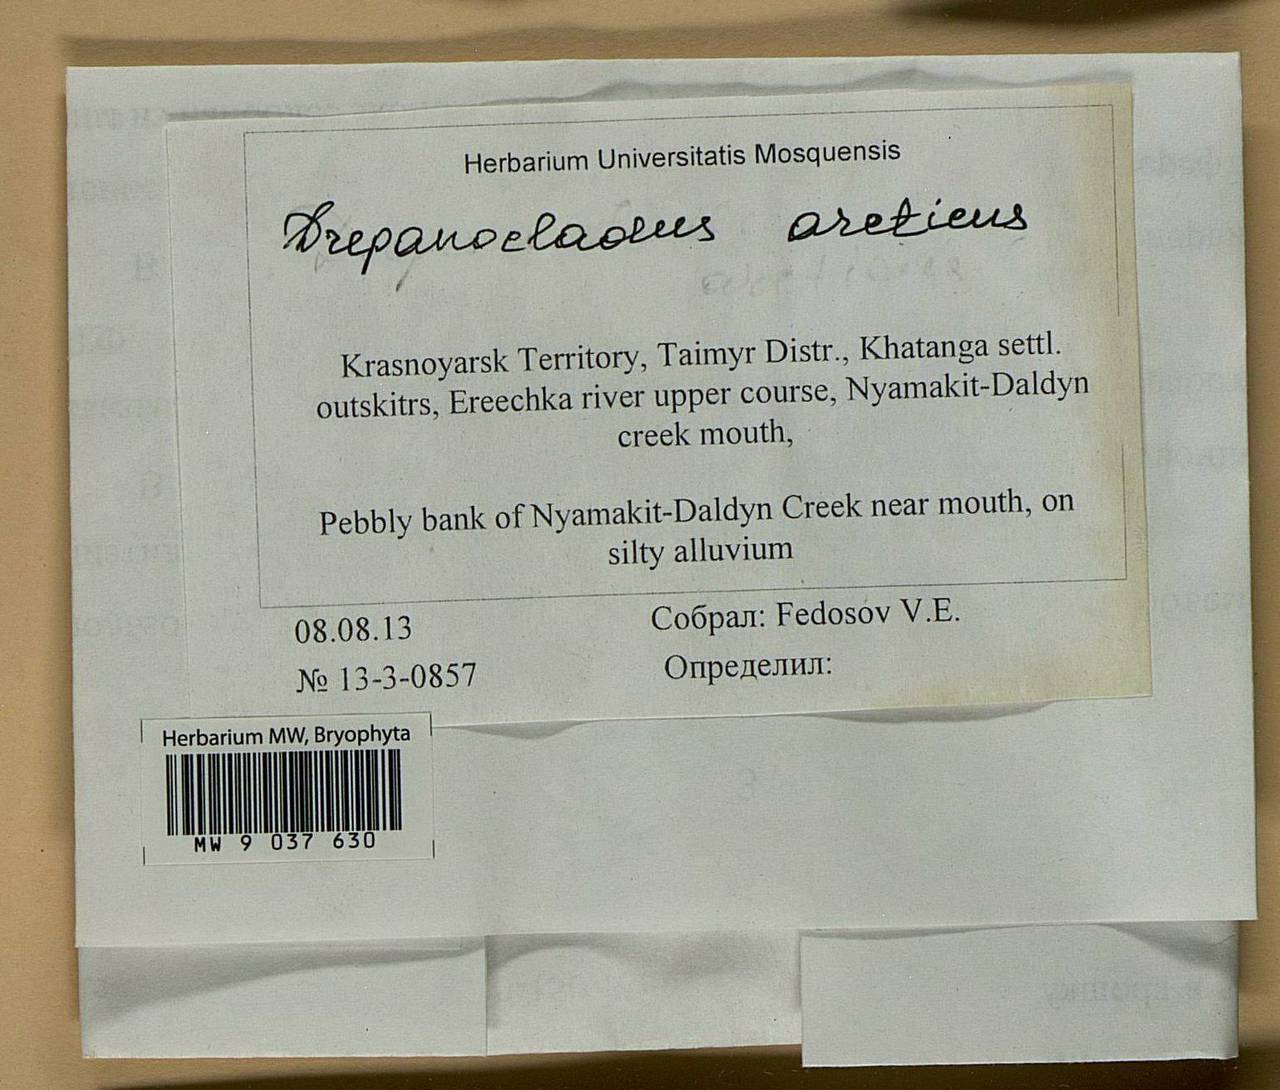 Herbarium Universitatis Mosquensis
Drepanocladus arcticus
Krasnoyarsk Territory, Taimyr Distr., Khatanga settl.
outskitrs, Ereechka river upper course, Nyamakit-Daldyn
creek mouth,
Pebbly bank of Nyamakit-Daldyn Creek near mouth, on
silty alluvium
08.08.13
Собрал: Fedosov V.E.
№ 13-3-0857
Определил:
Herbarium MW, Bryophyta
MW 9 037 630